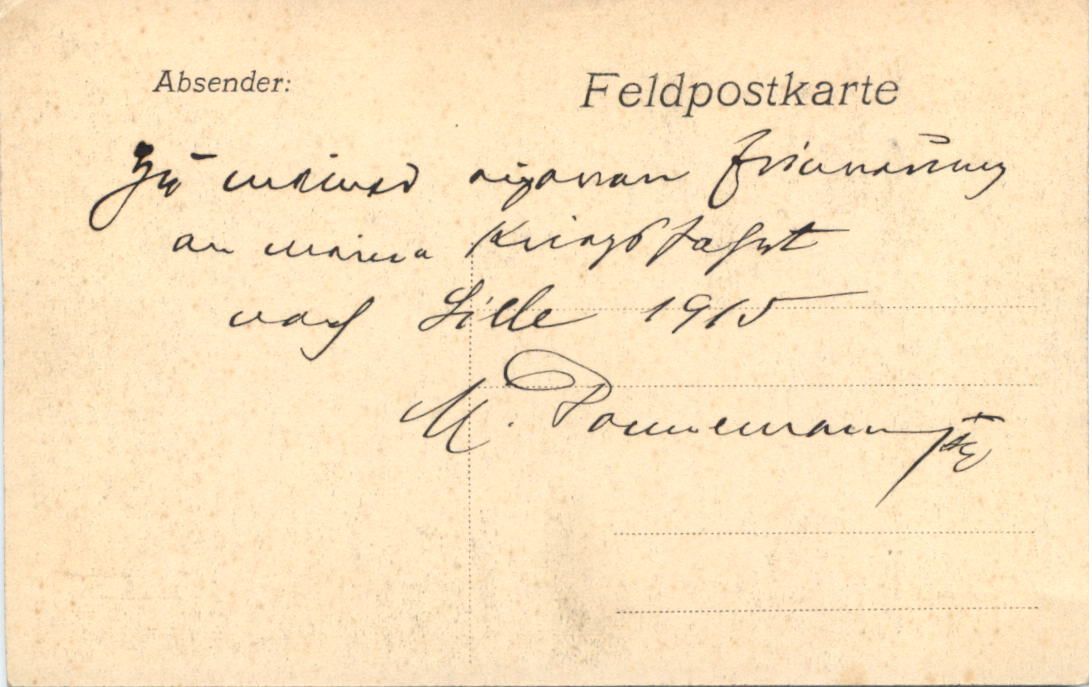 Absender:
Feldpostkarte
Zu meiner eigenen Erinnerung
an meine Kriegsfahrt
nach Lille 1915
M.